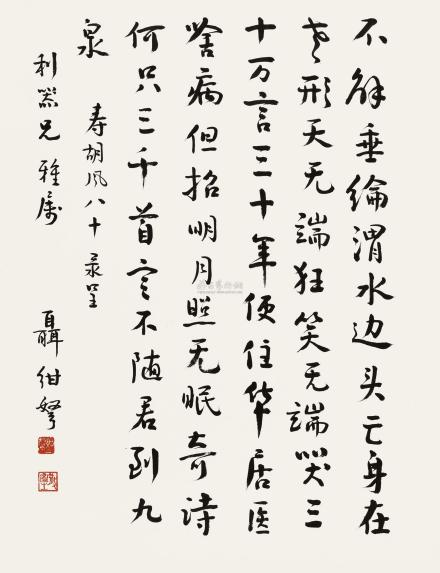 不解垂纶渭水边头亡身在
老形天无端狂笑无端哭三
十万言三十年便住华居医
啥病但招明月照无眠奇诗
何只三千首定不随君到九
泉 寿胡风八十 录呈
利器兄雅属 聂绀弩